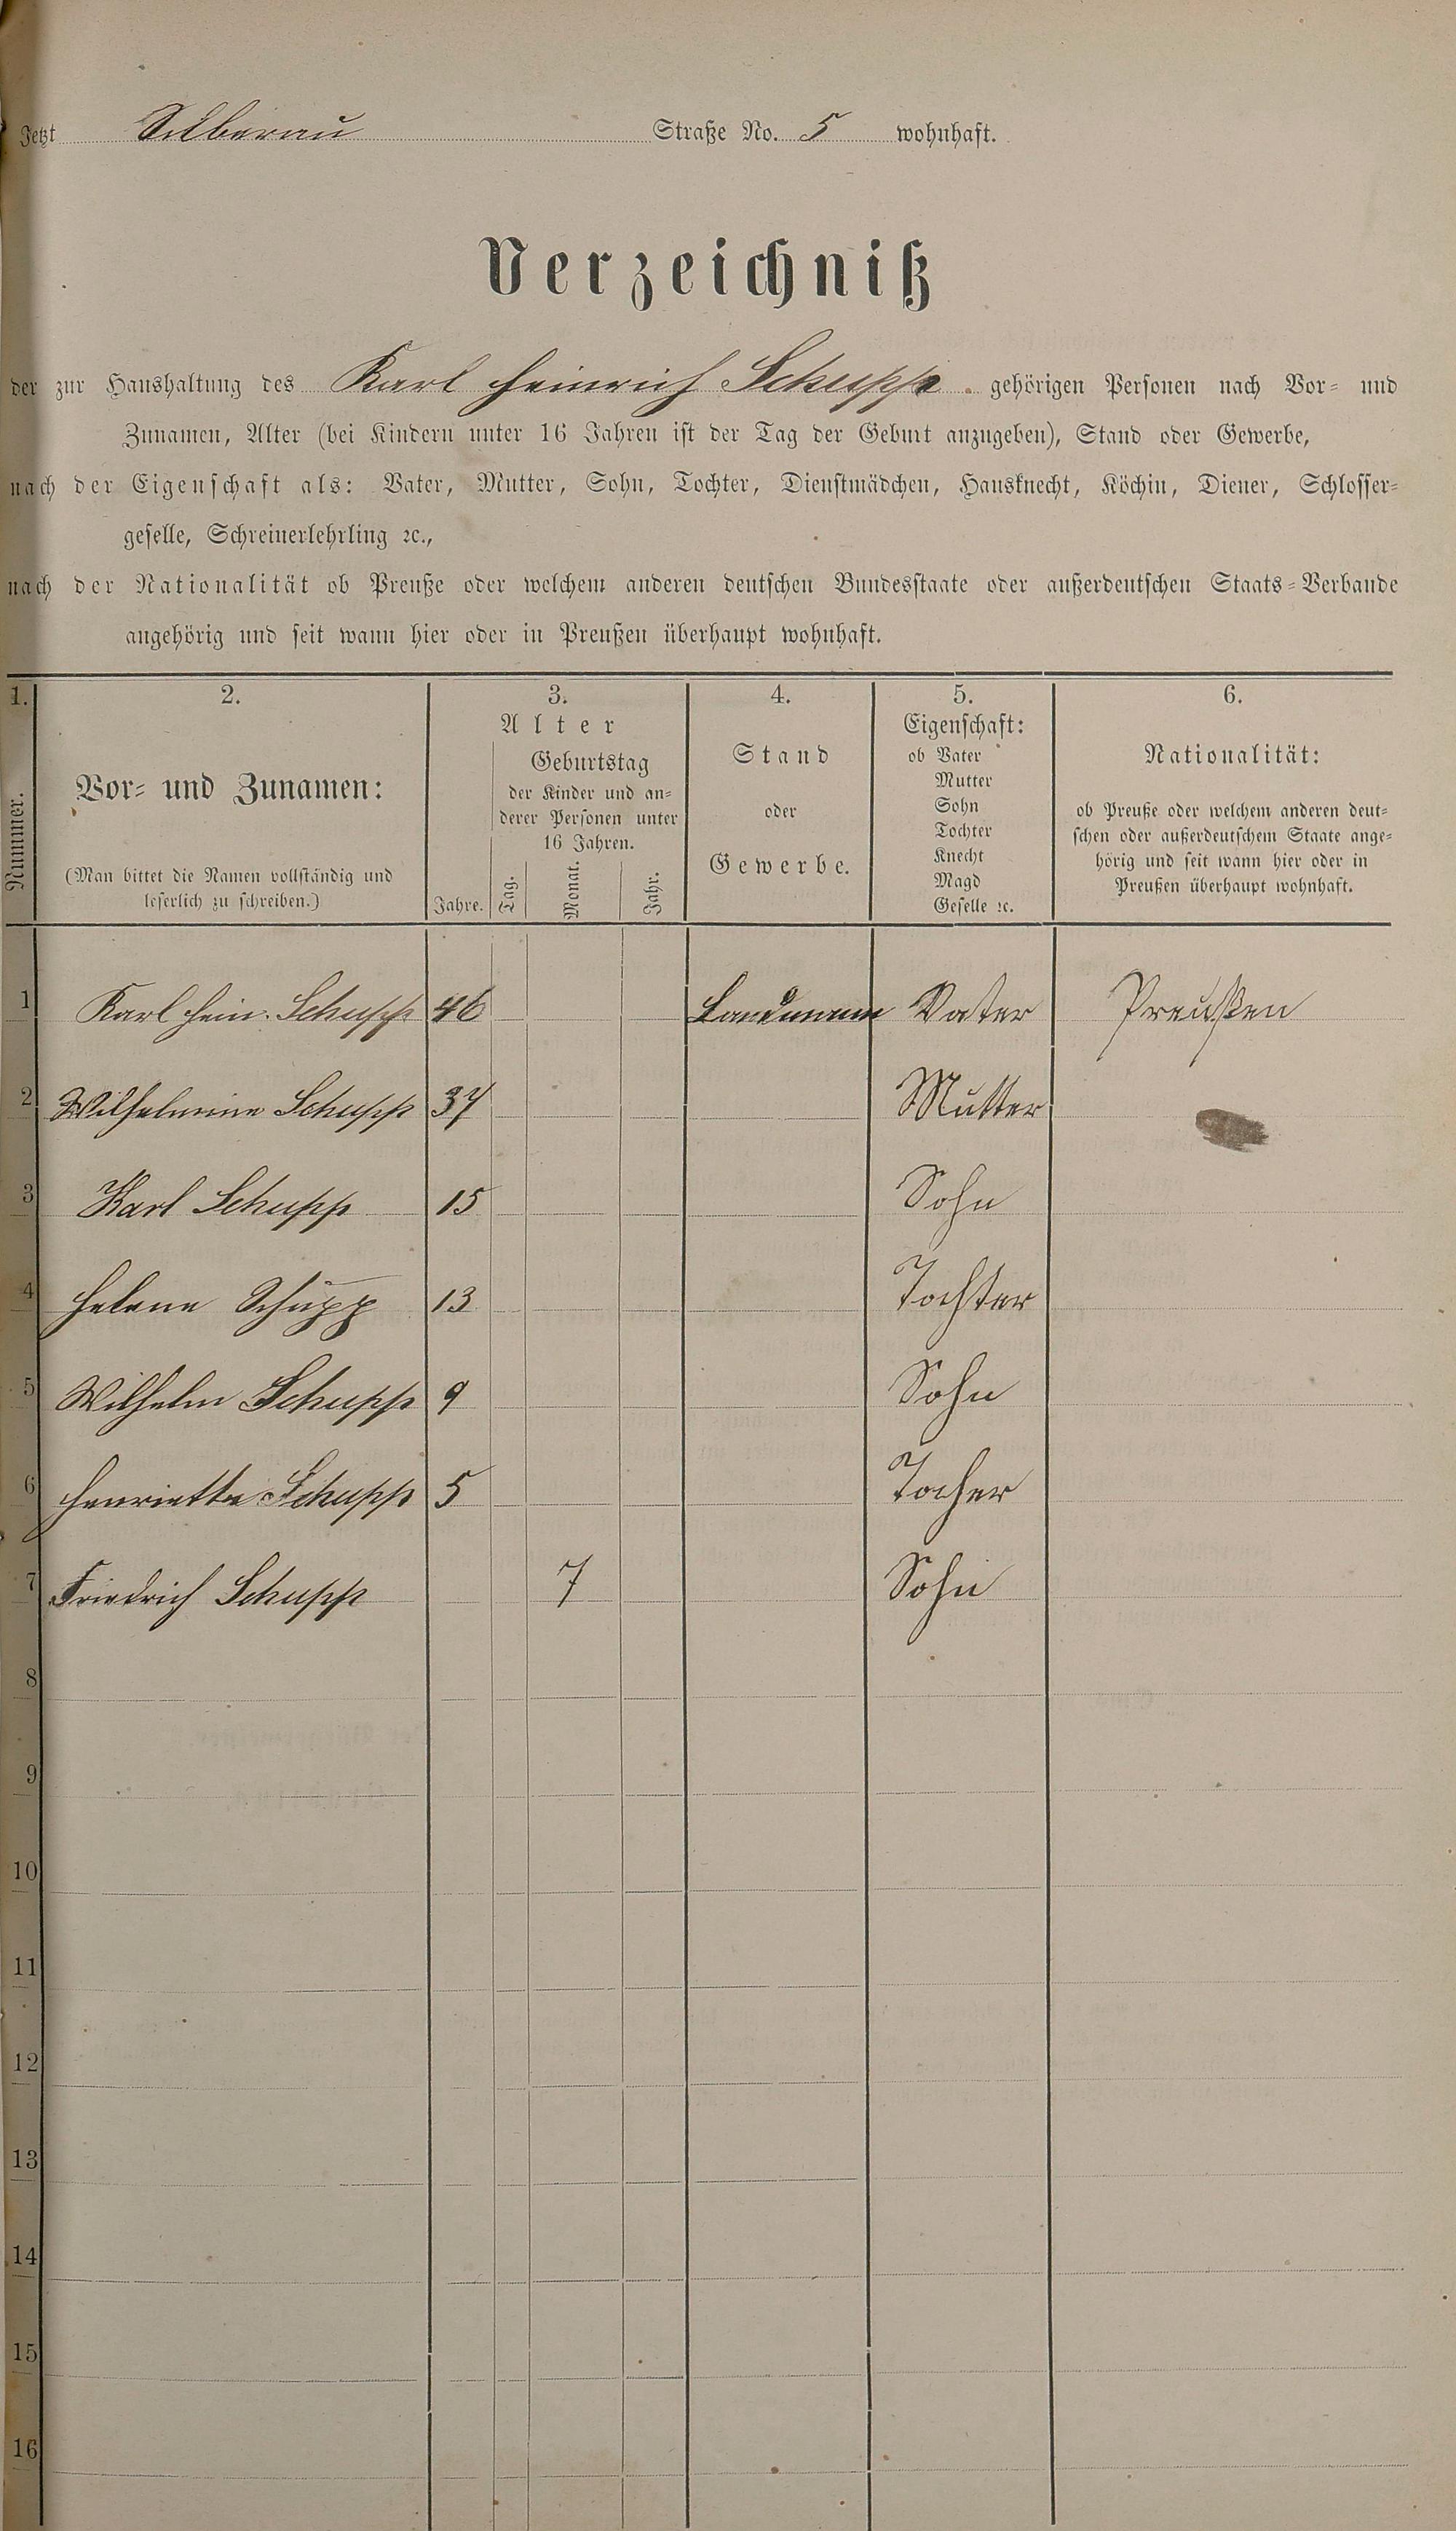 Jetzt Silberau Straße No. 5 wohnhaft.
Verzeichniß
der zur Haushaltung des Karl Heinrich Schupp gehörigen Personen nach Vor- und
Zunamen, Alter (bei Kindern unter 16 Jahren ist der Tag der Geburt anzugeben), Stand oder Gewerbe,
nach der Eigenschaft als: Vater, Mutter, Sohn, Tochter, Dienstmädchen, Hausknecht, Köchin, Diener, Schlosser-
geselle, Schreinerlehrling ꝛc.,
nach der Nationalität ob Preuße oder welchem anderen deutschen Bundesstaate oder außerdeutschen Staats-Verbande
angehörig und seit wann hier oder in Preußen überhaupt wohnhaft.
1.
Nummer.
2.
Vor- und Zunamen:
(Man bittet die Namen vollständig und
leserlich zu schreiben.)
3.
Alter
Jahre.
Geburtstag
der Kinder und an-
derer Personen unter
16 Jahren.
Tag. Monat. Jahr.
4.
Stand
oder
Gewerbe.
5.
Eigenschaft:
ob Vater
Mutter
Sohn
Tochter
Knecht
Magd
Geselle ꝛc.
6.
Nationalität:
ob Preuße oder welchem anderen deut-
schen oder außerdeutschem Staate ange-
hörig und seit wann hier oder in
Preußen überhaupt wohnhaft.
1 Karl Hein. Schupp 46 Landmann Vater Preußen
2 Wilhelmine Schupp 37 Mutter
3 Karl Schupp 15 Sohn
4 Helene Schupp 13 Tochter
5 Wilhelm Schupp 9 Sohn
6 Henriette Schupp 5 Tocher
7 Friedrich Schupp 7 Sohn
8
9
10
11
12
13
14
15
16